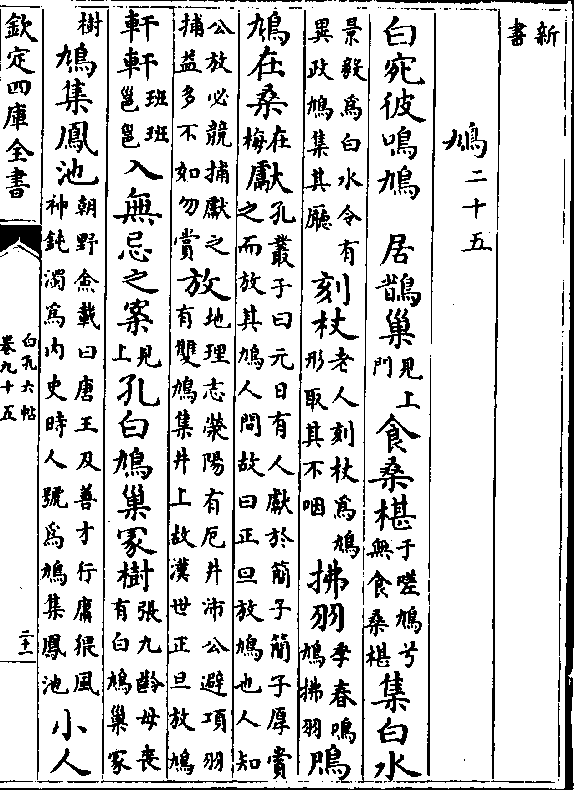 新書
鳩二十五
白宛彼鳴鳩 居鵲巢見上門食桑椹于嗟鳩兮無食桑椹集白水
景毅為白水令有異政鳩集其廳刻杖老人刻杖為鳩形取其不咽拂羽季春鳴鳩拂羽鳴
鳩在桑在梅獻孔叢子曰元日有人獻於簡子簡子厚賞之而放其鳩人問故曰正旦放鳩也人知
公放必競捕獻之捕益多不如勿賞放地理志滎陽有厄井沛公避項羽有雙鳩集井上故漢世正旦放鳩
軒軒班班邕邕入無忌之案見上孔白鳩巢冢樹張九齡母喪有白鳩巢冢
樹鳩集鳳池朝野僉載曰唐王及善才行庸猥風神鈍濁為內史時人號為鳩集鳳池小人
欽定四庫全書
白孔六帖
卷九十五
二十一